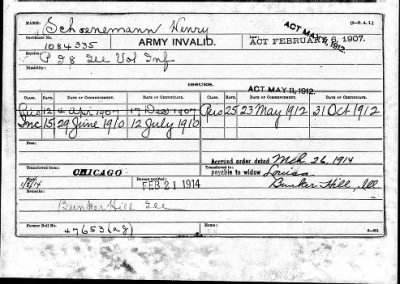 (3—P. A. I.)
Schoenemann Henry
ACT MAY 11, 1912.
Certificate No.
1084335
ARMY INVALID.
ACT FEBRUARY 6, 1907.
Service:
P & 8 Ill Vol Inf
Disability:
ISSUES.
ACT MAY 11, 1912.
CLASS. RATE. DATE OF COMMENCEMENT. DATE OF CERTIFICATE. CLASS. RATE. DATE OF COMMENCEMENT. DATE OF CERTIFICATE.
12 4 Apr 1907 17 Dec 1907 Reis 25 23 May 1912 31 Oct 1912
Inc 15 29 June 1910 12 July 1910
Accrued order dated Mch. 26, 1914
Transferred from
CHICAGO
Transferred to:
payable to widow Louisa
Bunker Hill, Ill
Died:
FEB 21 1914
Remarks:
Bunker Hill Ill
Former Roll No.